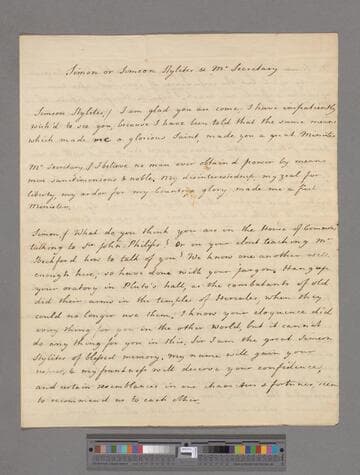 Simon or Simeon Styletes & Mr Secretary
Simeon Styletes,/ I am glad you are come. I have impatiently
wish'd to see you, because I have been told that the same means
which made me a glorious Saint, made you a great Minister
Mr Secretary,/ I believe no man ever obtain'd power by means
more sanctimonious & noble, My disinterestedness, my zeal for
liberty, my ardor for my Country's glory made me a first
Minister.
Simon,/ What do you think you are in the House of Commons
talking to Sir John Philips? Or in your closet teaching Mr
Beckford how to talk of you? We know one another well
enough here, so have done with your jargon, Hang up
your oratory in Pluto's hall, as the combatants of old
did their arms in the temple of Hercules, when they
could no longer use them, I know your eloquence did
every thing for you in the other World, but it cannot
do any thing for you in this, For I am the great Simeon
Styletes of blessed memory, my name will gain your
& my frankness will deserve your confidence,
and certain resemblances in our characters & fortunes, seem
to recommend us to each other.